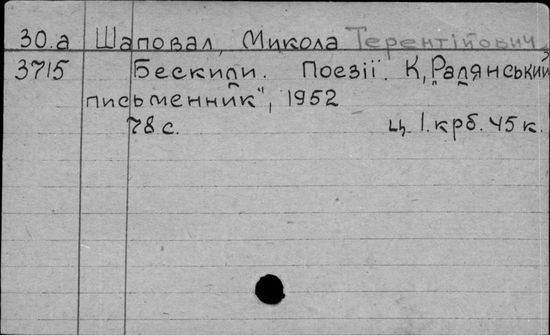 30.а Шаповал, Микола Терентійович.
3715 Бескиди. Поезії. К, „Радянський
письменник", 1952
78 с. ц. 1. крб. 45 к.